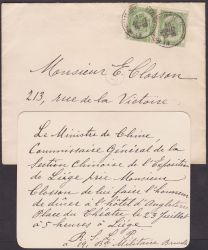 Monsieur E. Closson
213, rue de la Victoire
Le Ministre de Chine,
Commissaire Général de la
Section Chinoise de l'Exposition
de Liège prie Monsieur
Closson de lui faire l'honneur
de dîner à l'hôtel d'Angleterre
Place du Théâtre le 23 juillet
à 5 heures à Liège
R. S. V. P.
à 19, Militaire